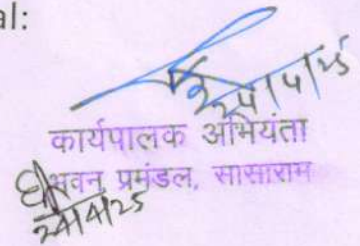 al:
24/4/25
कार्यपालक अभियंता
भवन प्रमंडल, सासाराम
24/4/25